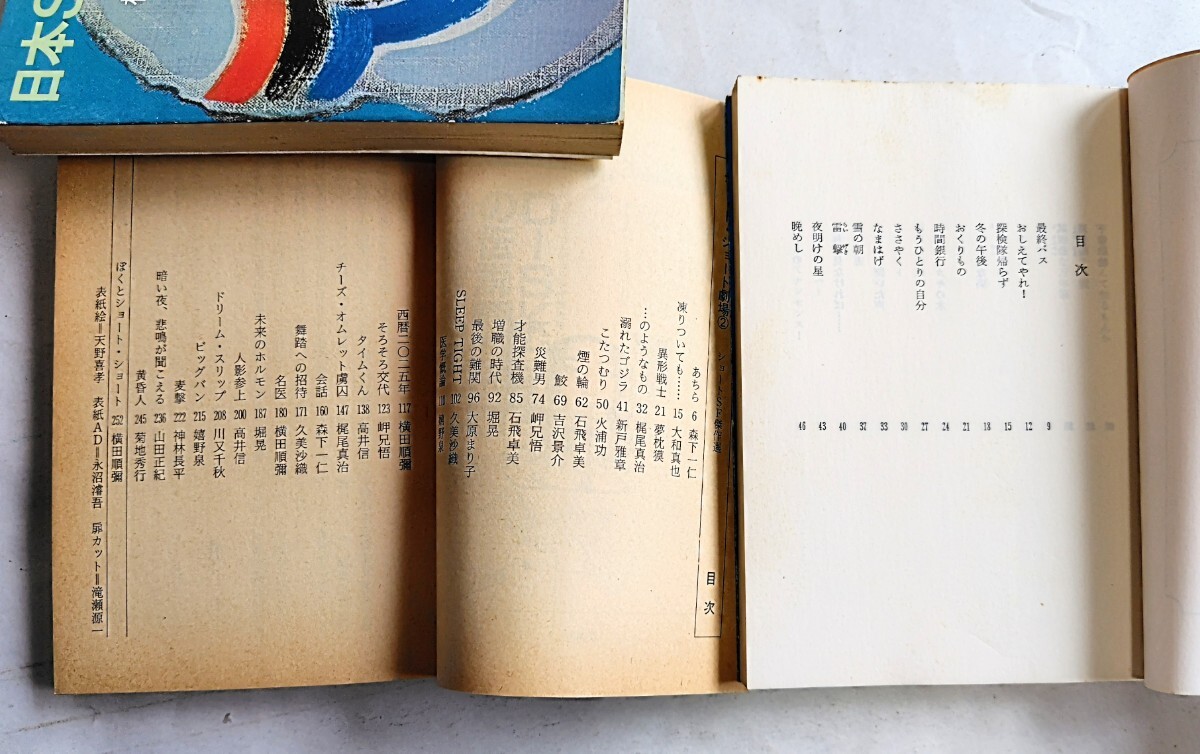 日本S
目次
最終バス 9
おしえてやれ! 12
探検隊帰らず 15
冬の午後 18
おくりもの 21
時間銀行 24
もうひとりの自分 27
ささやく 30
なまはげ 33
雪の朝 37
雷撃 40
夜明けの星 43
晩めし 46
ショートSF傑作選
目次
あちら 6 森下一仁
凍りついても…… 15 大和真也
異形戦士 21 夢枕獏
…のようなもの 32 梶尾真治
溺れたゴジラ 41 新戸雅章
こたつむり 50 火浦功
煙の輪 62 石飛卓美
鮫 69 吉沢景介
災難男 74 岬兄悟
才能探査機 85 石飛卓美
増職の時代 92 堀晃
最後の難関 96 大原まり子
SLEEP TIGHT 102 久美沙織
医学概論 111 嬉野泉
西暦二〇二五年 117 横田順彌
そろそろ交代 123 岬兄悟
タイムくん 138 高井信
チーズ・オムレット虜囚 147 梶尾真治
会話 160 森下一仁
舞踏への招待 171 久美沙織
名医 180 横田順彌
未来のホルモン 187 堀晃
人影参上 200 高井信
ドリーム・スリップ 208 川又千秋
ビッグバン 215 嬉野泉
麦撃 222 神林長平
暗い夜、悲鳴が聞こえる 236 山田正紀
黄昏人 245 菊地秀行
ぼくとショート・ショート 252 横田順彌
表紙絵=天野喜孝 表紙AD=永沼濬吾 扉カット=滝瀬源一